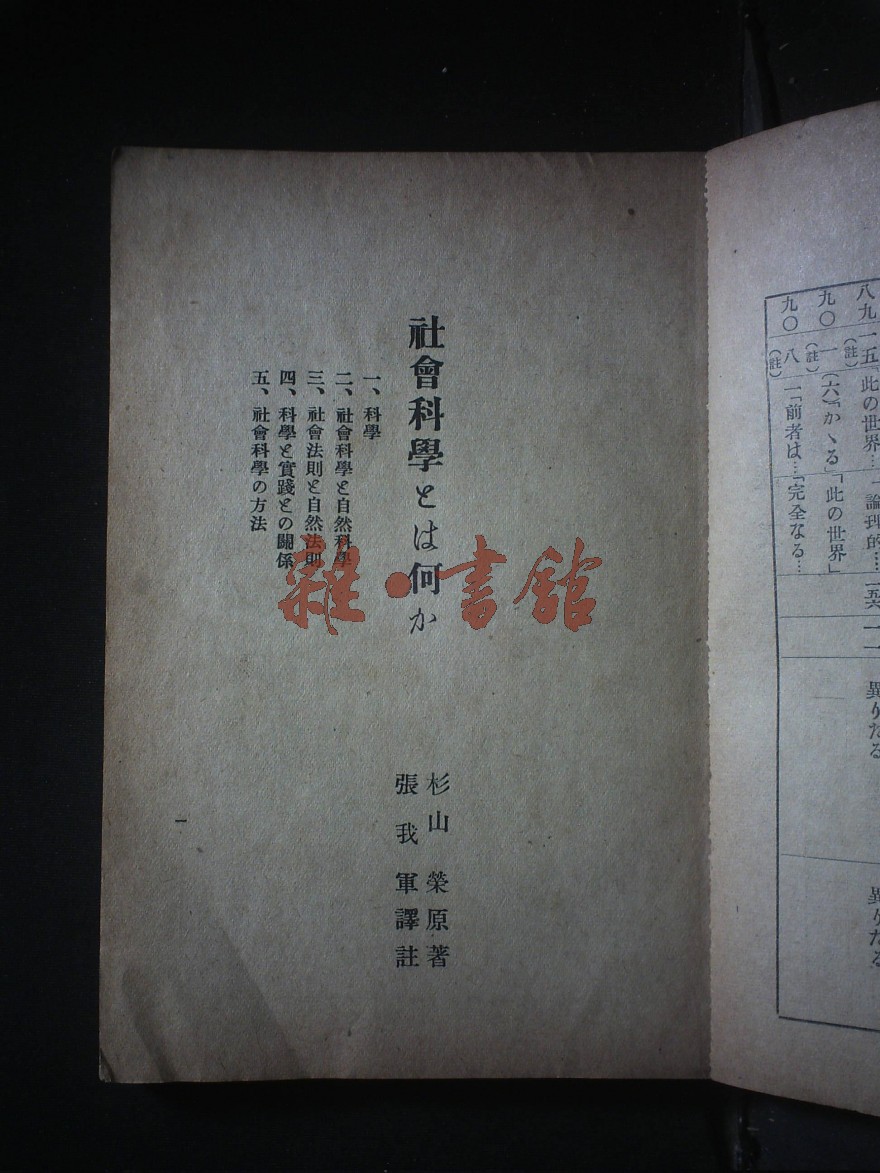 社會科學とは何か
一、科學
二、社會科學と自然科學
三、社會法則と自然法則
四、科學と實踐との關係
五、社會科學の方法
杉山榮原著
張我軍譯註
一
雜·書館
八九 一五(註)「此の世界…「論理的……
異りたる
異りたる
九〇 一(註)(六)「かゝる」「此の世界」
九〇 八(註)一「前者は…「完全なる…